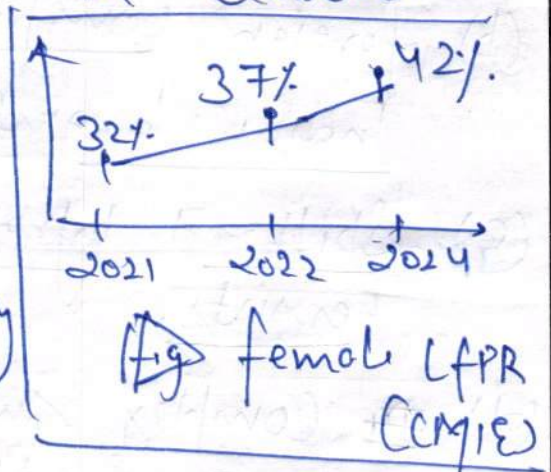 42%.
37%
32%
2021 2022 2024
Fig female LFPR
(CMIE)